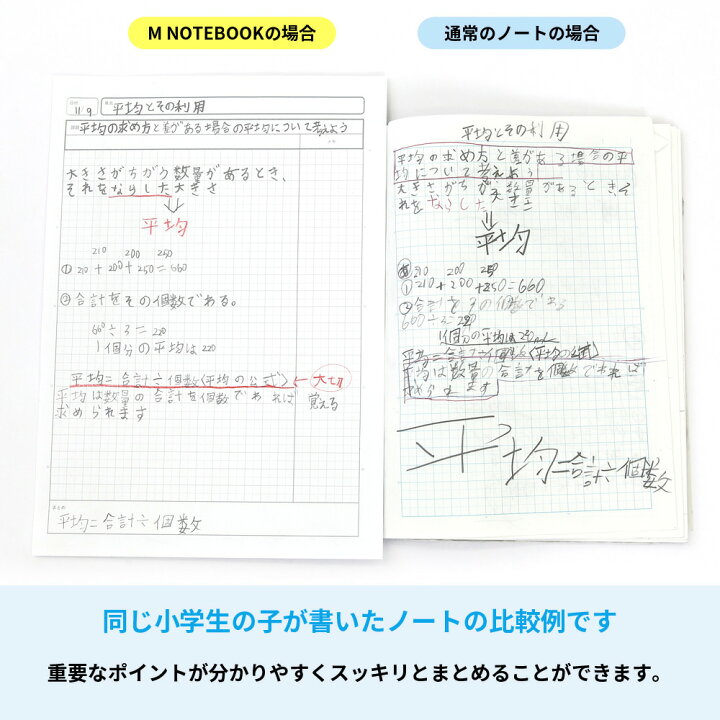 M NOTEBOOKの場合
通常のノートの場合
11/9
平均とその利用
平均の求め方と差がある場合の平均について考えよう
大きさがちがう数量があるとき、
それをならした大きさ
⇓
平均
210 200 250
① 210+200+250=660
② 合計をその個数でわる。
660÷3=220
1個分の平均は220
平均=合計÷個数(平均の公式) ← 大切
平均は数量の合計を個数でわれば 覚える
求められます
まとめ
平均=合計÷個数
平均とその利用
平均の求め方と差がある場合の平
均について考えよう
大きさがちがう数量があるとき、そ
れをならした大きさ
⇓
平均
210 200 250
① 210+200+250=660
② 合計をその個数でわる
660÷3=220
1個分の平均は220
平均=合計÷個数(平均の公式)
平均は数量の合計を個数でわれば
められます
平均=合計÷個数
同じ小学生の子が書いたノートの比較例です
重要なポイントが分かりやすくスッキリとまとめることができます。